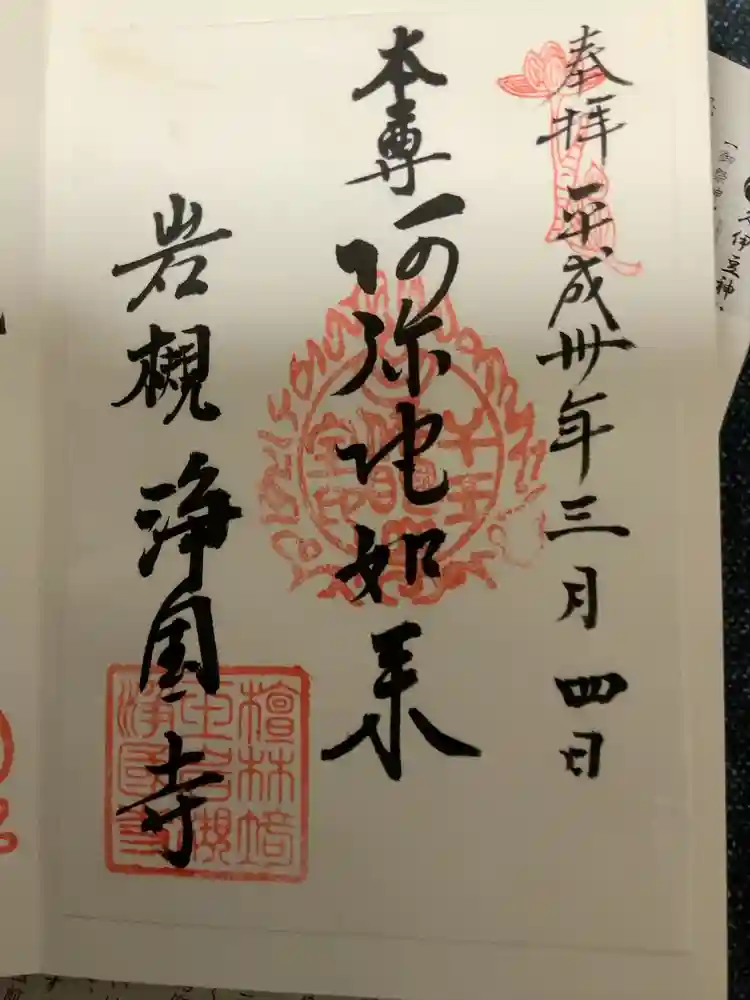 奉拝 平成卅年三月四日
本尊 阿弥陀如来
岩槻 浄国寺
檀林埼
玉岩槻
浄國寺